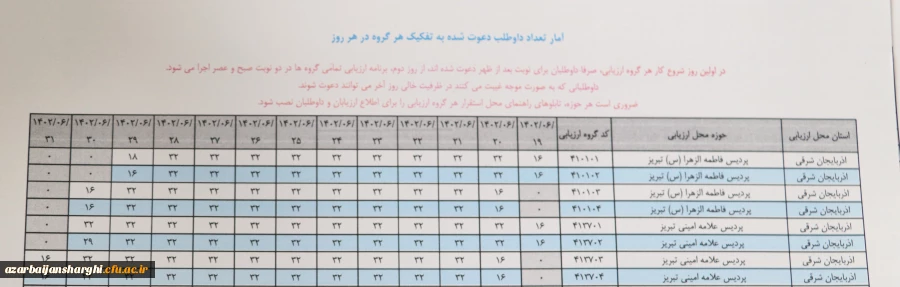 آمار تعداد داوطلب دعوت شده به تفکیک هر گروه در هر روز
در اولین روز شروع کار هر گروه ارزیابی، صرفا داوطلبان برای نوبت بعد از ظهر دعوت شده اند. از روز دوم، برنامه ارزیابی تمامی گروه ها در دو نوبت صبح و عصر اجرا می شود.
داوطلبانی که به صورت موجه غیبت می کنند در ظرفیت خالی روز آخر می توانند دعوت شوند.
ضروری است هر حوزه، تابلوهای راهنمای محل استقرار هر گروه ارزیابی را برای اطلاع ارزیابان و داوطلبان نصب شود.
استان محل ارزیابی حوزه محل ارزیابی کد گروه ارزیابی ۱۴۰۲/۰۶/۱۹ ۱۴۰۲/۰۶/۲۰ ۱۴۰۲/۰۶/۲۱ ۱۴۰۲/۰۶/۲۲ ۱۴۰۲/۰۶/۲۳ ۱۴۰۲/۰۶/۲۴ ۱۴۰۲/۰۶/۲۵ ۱۴۰۲/۰۶/۲۶ ۱۴۰۲/۰۶/۲۷ ۱۴۰۲/۰۶/۲۸ ۱۴۰۲/۰۶/۲۹ ۱۴۰۲/۰۶/۳۰ ۱۴۰۲/۰۶/۳۱
آذربایجان شرقی پردیس فاطمه الزهرا (س) تبریز ۴۱۰۱۰۱ ۱۶ ۳۲ ۳۲ ۳۲ ۳۲ ۳۲ ۳۲ ۳۲ ۳۲ ۳۲ ۱۸ ۰ ۰
آذربایجان شرقی پردیس فاطمه الزهرا (س) تبریز ۴۱۰۱۰۲ ۱۶ ۳۲ ۳۲ ۳۲ ۳۲ ۳۲ ۳۲ ۳۲ ۳۲ ۳۲ ۱۶ ۰ ۰
آذربایجان شرقی پردیس فاطمه الزهرا (س) تبریز ۴۱۰۱۰۳ ۰ ۱۶ ۳۲ ۳۲ ۳۲ ۳۲ ۳۲ ۳۲ ۳۲ ۳۲ ۳۲ ۱۶ ۰
آذربایجان شرقی پردیس فاطمه الزهرا (س) تبریز ۴۱۰۱۰۴ ۰ ۱۶ ۳۲ ۳۲ ۳۲ ۳۲ ۳۲ ۳۲ ۳۲ ۳۲ ۳۲ ۱۶ ۰
آذربایجان شرقی پردیس علامه امینی تبریز ۴۱۳۷۰۱ ۰ ۳۲ ۳۲ ۳۲ ۳۲ ۳۲ ۳۲ ۳۲ ۳۲ ۳۲ ۳۲ ۳۲ ۰
آذربایجان شرقی پردیس علامه امینی تبریز ۴۱۳۷۰۲ ۱۶ ۳۲ ۳۲ ۳۲ ۳۲ ۳۲ ۳۲ ۳۲ ۳۲ ۳۲ ۳۲ ۲۹ ۰
آذربایجان شرقی پردیس علامه امینی تبریز ۴۱۳۷۰۳ ۰ ۱۶ ۳۲ ۳۲ ۳۲ ۳۲ ۳۲ ۳۲ ۳۲ ۳۲ ۳۲ ۳۲ ۱۶
آذربایجان شرقی پردیس علامه امینی تبریز ۴۱۳۷۰۴ ۰ ۱۶ ۳۲ ۳۲ ۳۲ ۳۲ ۳۲ ۳۲ ۳۲ ۳۲
azarbaijansharghi.cfu.ac.ir